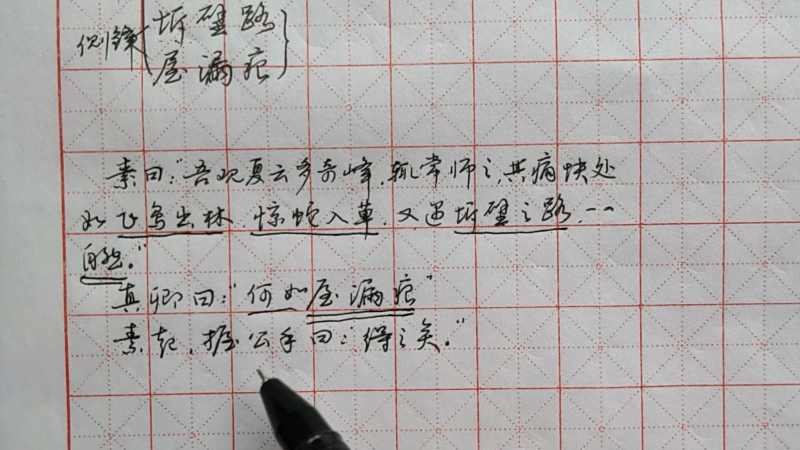 侧锋{坼壁路
屋漏痕}
素曰:"吾观夏云多奇峰,辄常师之,其痛快处
如飞鸟出林、惊蛇入草,又遇坼壁之路,一一
自然。"
真卿曰:"何如屋漏痕"
素起,握公手曰:"得之矣。"